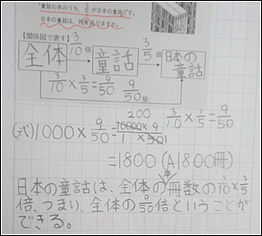 童話の本のうち、3/5が日本の童話です。
日本の童話は、何冊ありますか。
【関係図で表す】
3/10倍 3/5倍
全体 → 童話 → 日本の童話
3/10×3/5=9/50 9/50倍
(式)1000×9/50=
200
3/10×3/5=9/50
=1800 (A1800冊)
日本の童話は、全体の冊数の3/10×3/5
倍、つまり、全体の9/50倍ということが
できる。